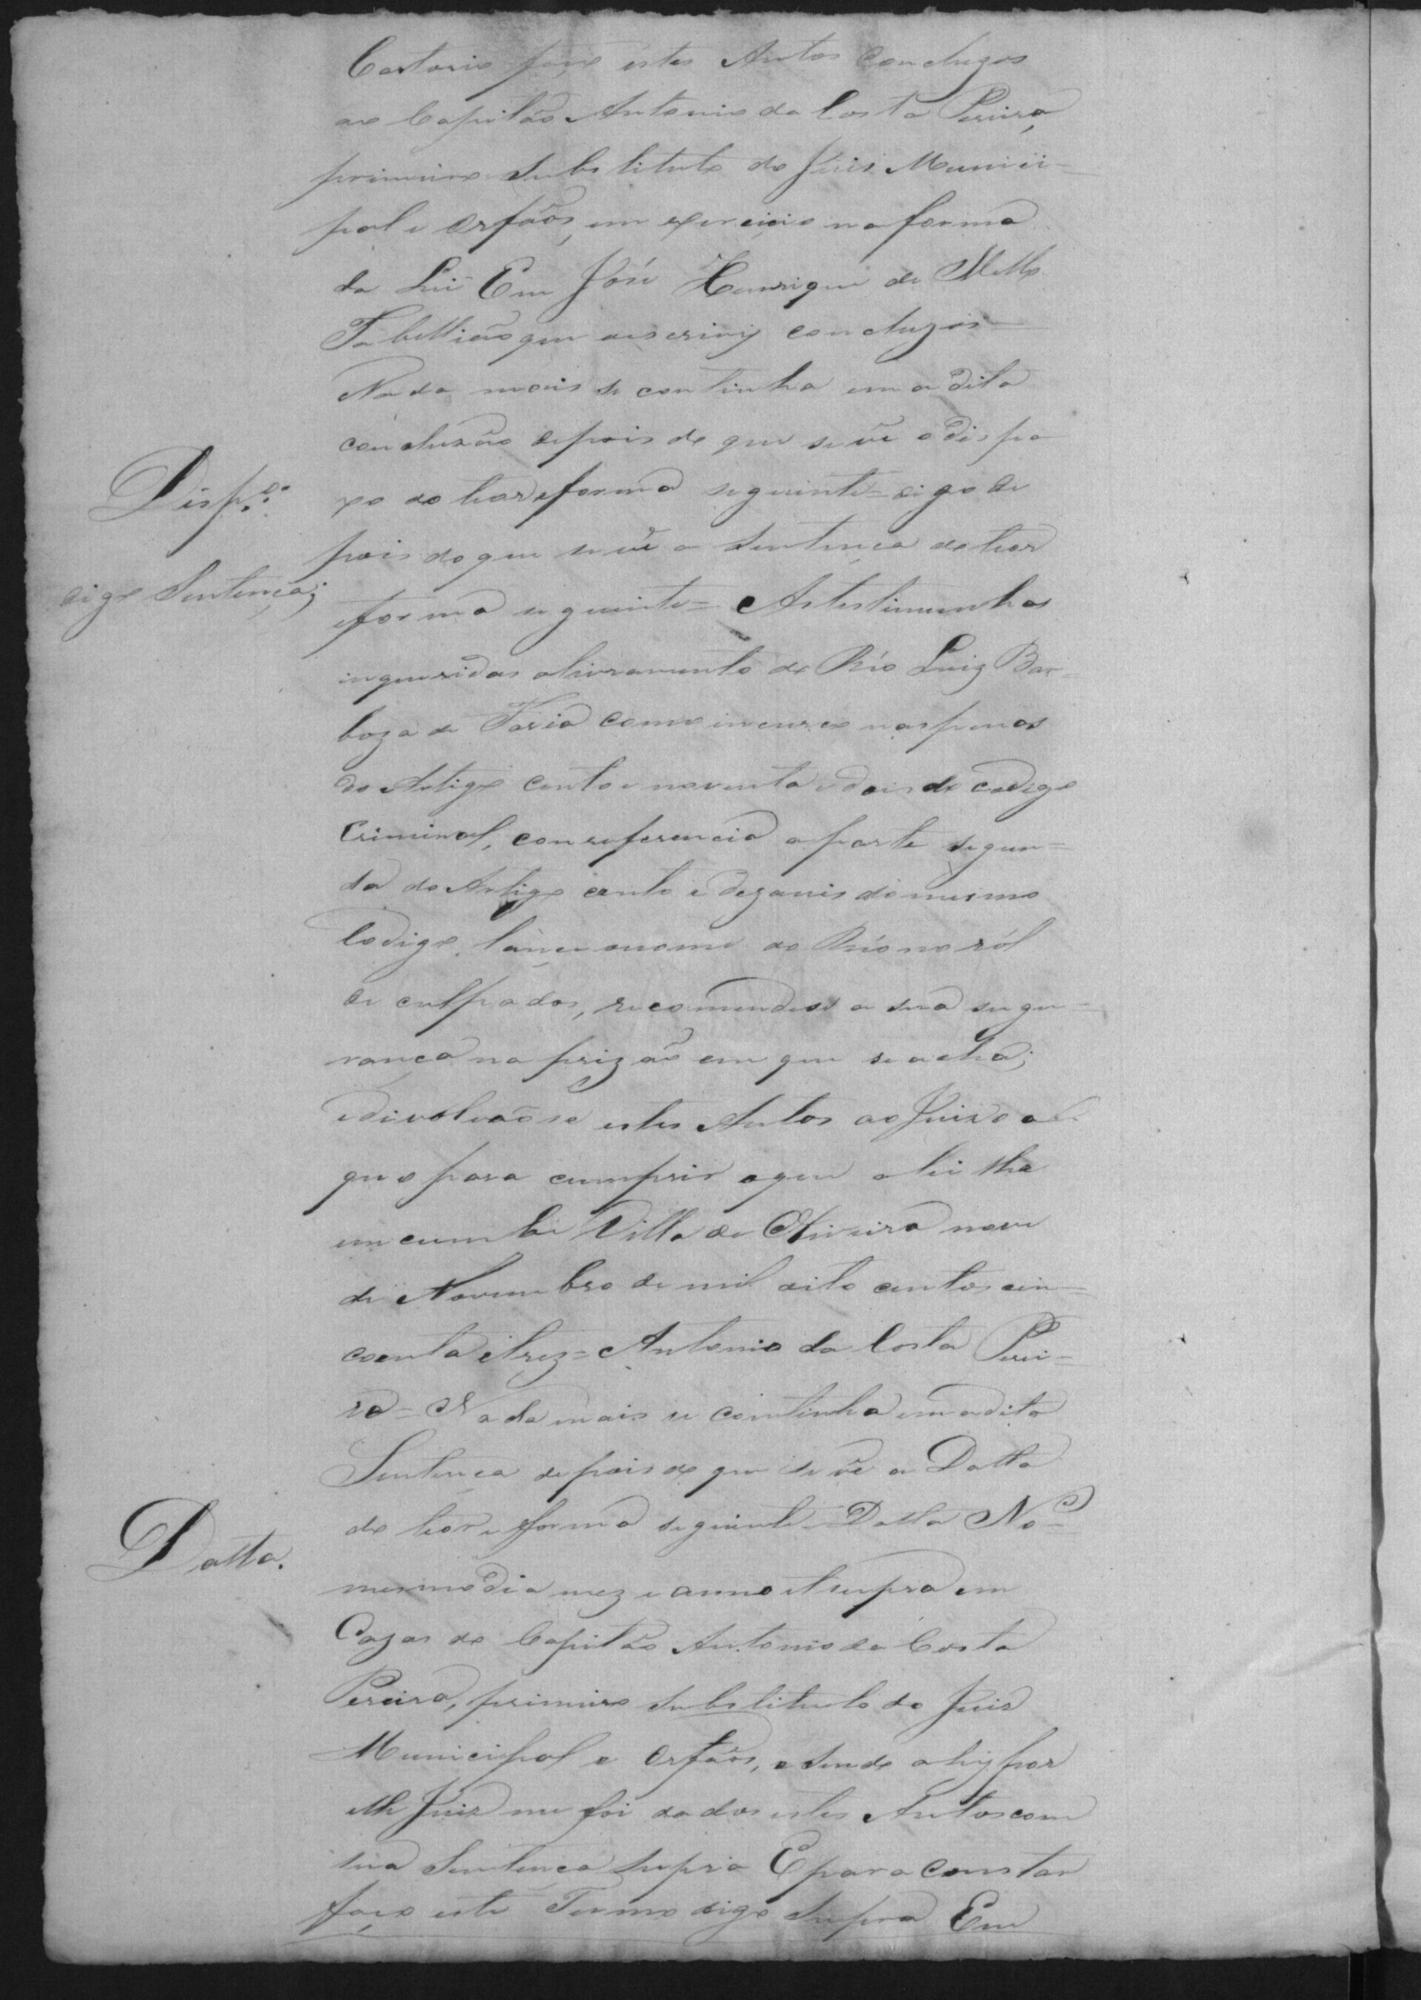 Cartorio faço estes Autos concluzos
ao Capitão Antonio da Costa Pereira
primeiro Substituto do Juis Munici=
pal e Orfãos, em exercicio na forma
da Lei Eu José Henrique de Mello
Tabellião que aescrivy concluzos
Nada mais se continha em a dita
concluzão depois do que se vê o Dispa
Disp.º
xo do theor eforma seguinte= digo de
pois do que se vê a Sentença do theor
digo Sentença;
eforma seguinte= As testimunhas
inqueridas a livramento do Réo Luiz Bar=
boza de Faria como incurso nas penas
do Artigo cento e noventa e dois do codigo
Criminal, com referencia a parte segun=
da do Artigo cento e dezaceis do mesmo
Codigo, lance o nome do Réo no ról
de culpados, recomendese a sua segu=
rança na prizão em que se acha;
e divolvão se estes Autos ao Juizo a
quo para cumprir o que a lei lhe
encumbe Villa de Oliveira nove
de Novembro de mil oito centos cin=
coenta e trez= Antonio da Costa Perei=
ra= Nada mais se continha em a dita
Sentença depois do que se vê a Datta
do theor eforma seguinte= Datta No
Datta.
mesmo dia mez e anno et supra em
Cazas do Capitão Antonio da Costa
Pereira, primeiro Substituto do Juis
Municipal e Orfãos, e sendo ahy por
elle Juis me foi dados estes Autos com
sua Sentença supra E para constar
faço este Termo digo supra Eu